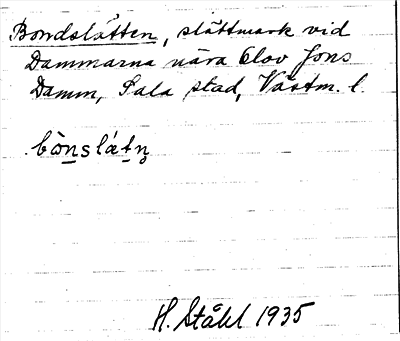 Bondslätten, slättmark vid
Dammarna nära Olov Jons
Damm, Sala stad, Västm. l.
bònslǽtn̥
H. Ståhl 1935